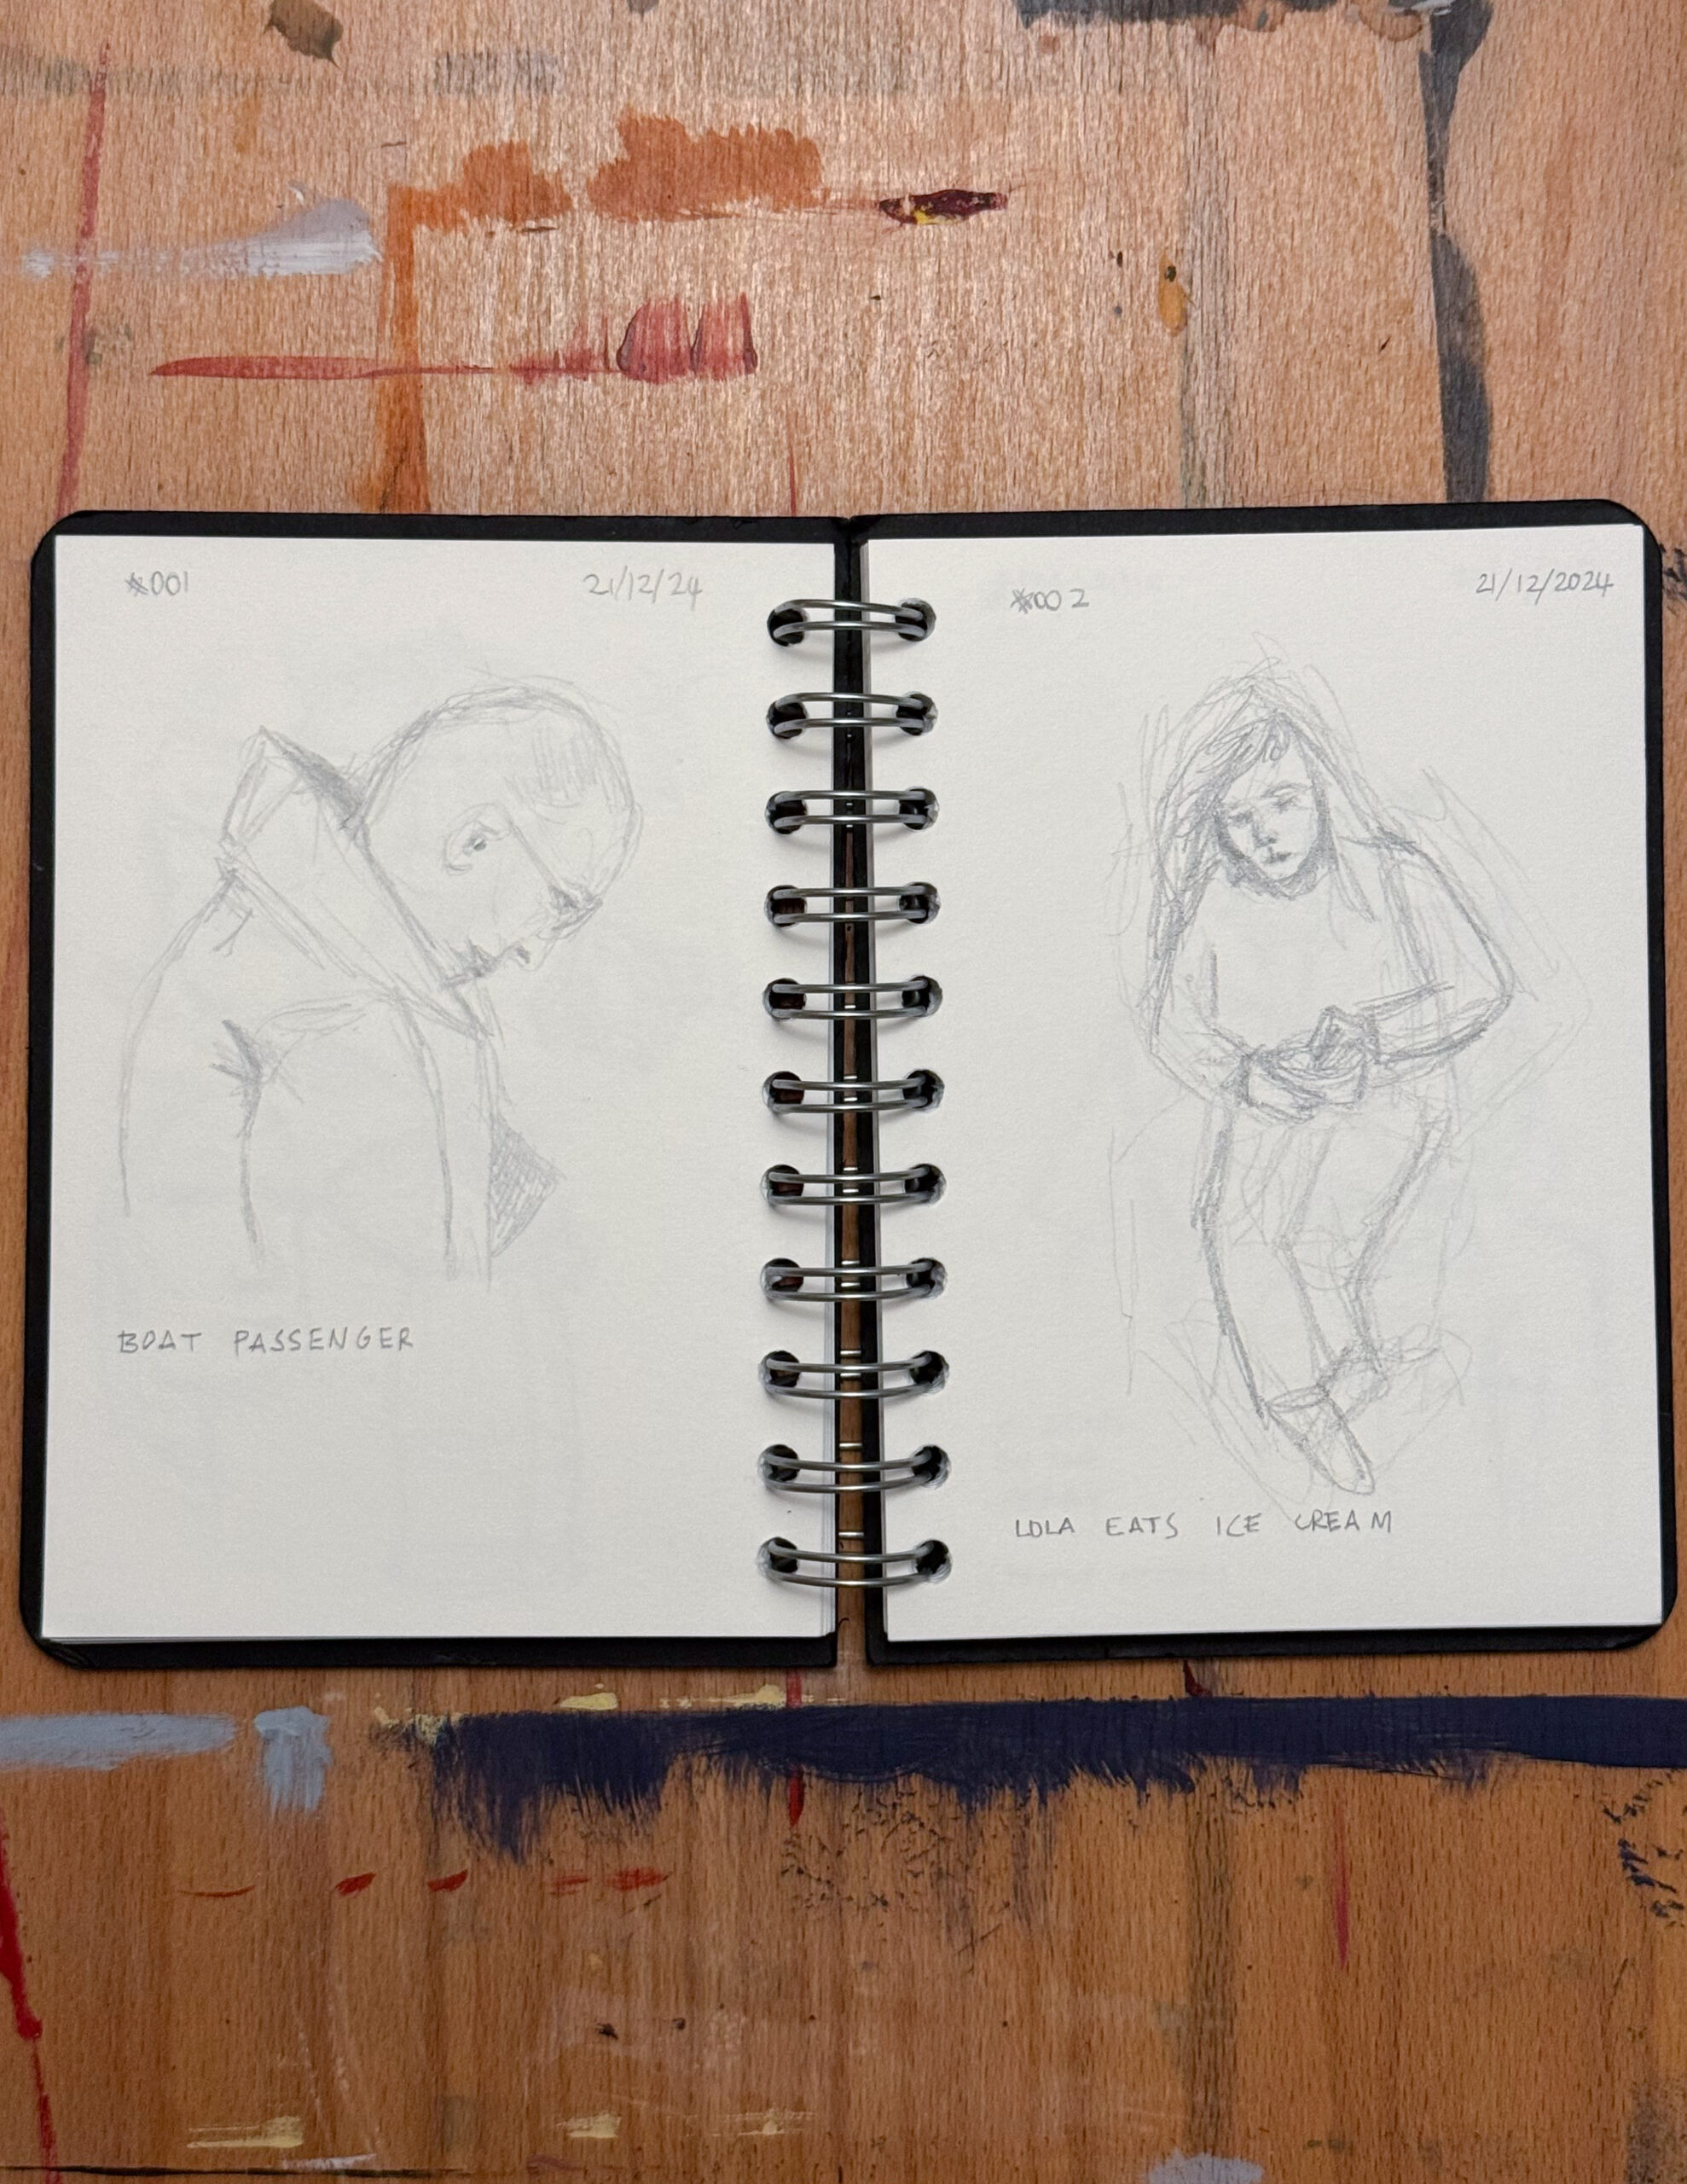 #001
21/12/24
BOAT PASSENGER
#002
21/12/2024
LOLA EATS ICE CREAM